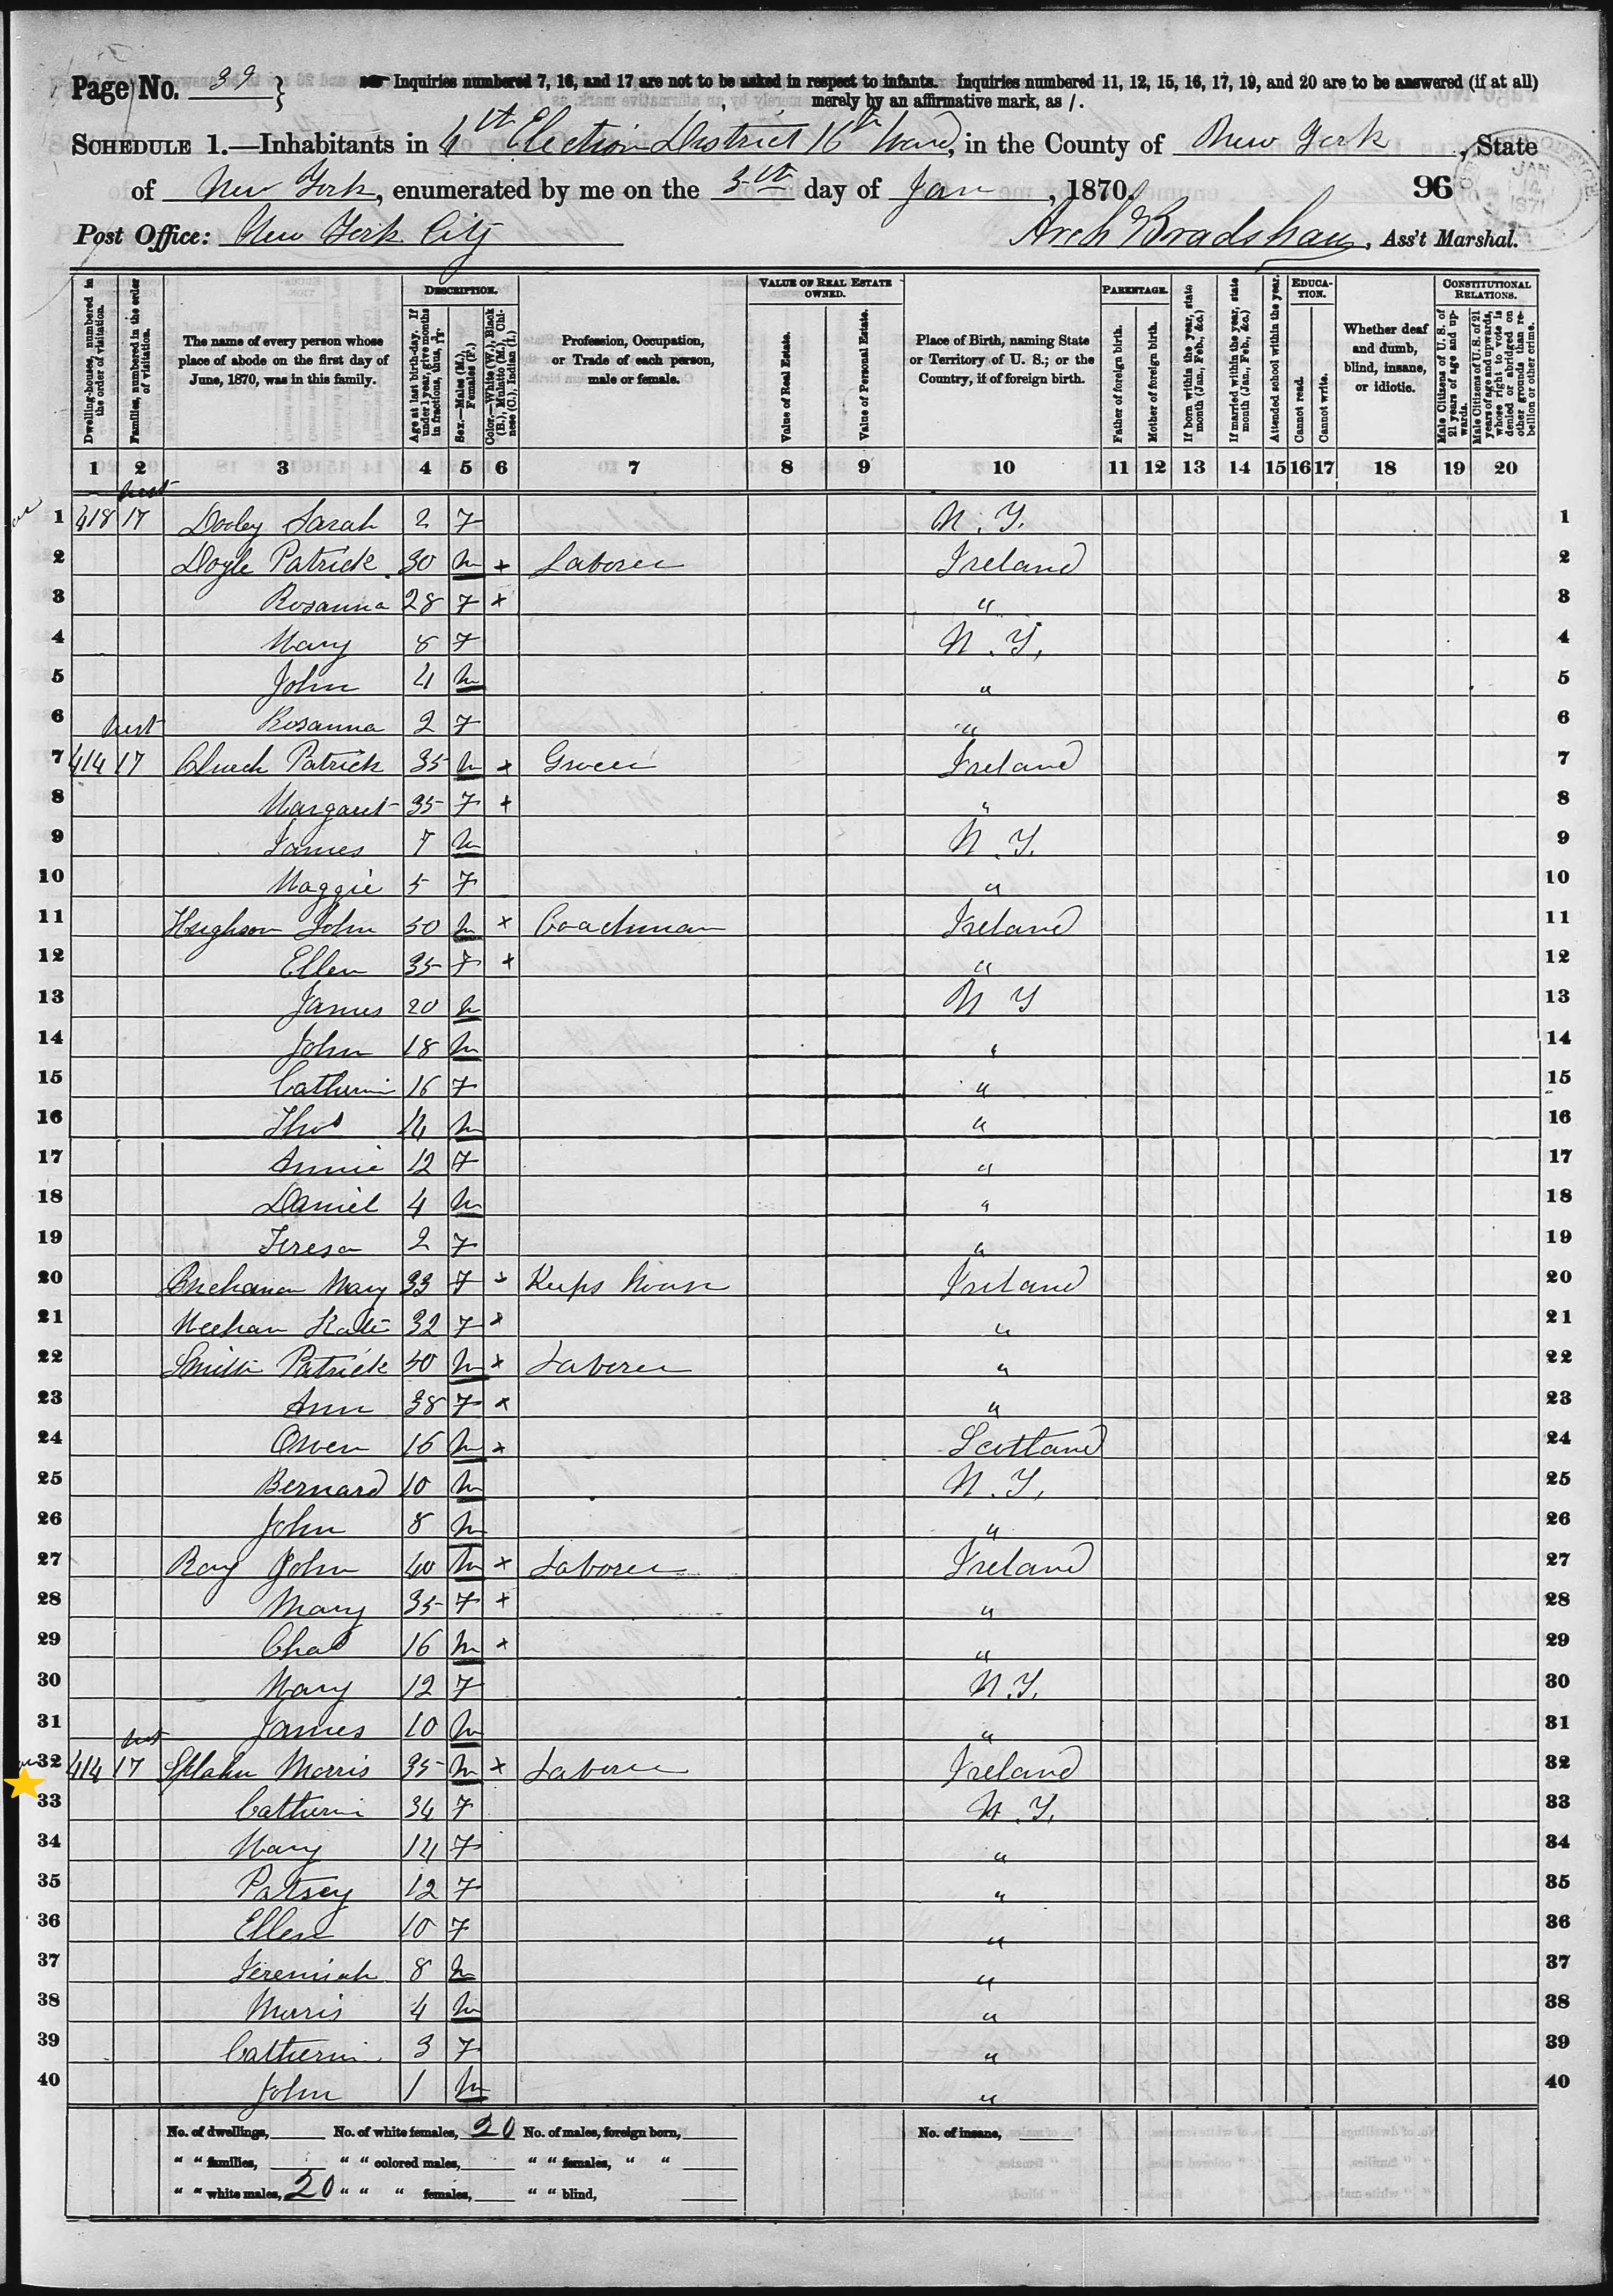 Page No. 39 } Inquiries numbered 7, 16, and 17 are not to be asked in respect to infants. Inquiries numbered 11, 12, 15, 16, 17, 19, and 20 are to be answered (if at all)
merely by an affirmative mark, as /.
SCHEDULE 1.—Inhabitants in 4th Election District 16th Ward, in the County of New York, State
of New York, enumerated by me on the 5th day of Jan, 1870. 96
JAN 14 1871
Post Office: New York City Arch Bradshaw, Ass't Marshal.
Dwelling-houses, numbered in the order of visitation.
Families, numbered in the order of visitation.
The name of every person whose place of abode on the first day of June, 1870, was in this family.
DESCRIPTION.
Age at last birth-day. If under 1 year, give months in fractions, thus, 3/12
Sex.—Males (M.), Females (F.)
Color.—White (W.), Black (B.), Mulatto (M.), Chinese (C.), Indian (I.)
Profession, Occupation, or Trade of each person, male or female.
VALUE OF REAL ESTATE OWNED.
Value of Real Estate.
Value of Personal Estate.
Place of Birth, naming State or Territory of U. S.; or the Country, if of foreign birth.
PARENTAGE.
Father of foreign birth.
Mother of foreign birth.
If born within the year, state month (Jan., Feb., &c.)
If married within the year, state month (Jan., Feb., &c.)
Attended school within the year.
EDUCATION.
Cannot read.
Cannot write.
Whether deaf and dumb, blind, insane, or idiotic.
CONSTITUTIONAL RELATIONS.
Male Citizens of U. S. of 21 years of age and upwards.
Male Citizens of U. S. of 21 years of age and upwards, whose right to vote is denied or abridged on other grounds than rebellion or other crime.
1 2 3 4 5 6 7 8 9 10 11 12 13 14 15 16 17 18 19 20
West
1 418 17 Dooley Sarah 2 F N. Y. 1
2 Doyle Patrick 30 M + Laborer Ireland 2
3 Rosanna 28 F + " 3
4 Mary 8 F N. Y. 4
5 John 4 M " 5
6 West Rosanna 2 F " 6
7 414 17 Patrick 35 M + Grocer Ireland 7
8 Margaret 35 F + " 8
9 James 7 M N. Y. 9
10 Maggie 5 F " 10
11 Hughson John 50 M + Coachman Ireland 11
12 Ellen 35 F + " 12
13 James 20 M N Y 13
14 John 18 M " 14
15 Catherin 16 F " 15
16 Thos 14 M " 16
17 Annie 12 F " 17
18 Daniel 4 M " 18
19 Teresa 2 F " 19
20 Buchanan Mary 33 F + Keeps house Ireland 20
21 Meehan Kate 32 F + " 21
22 Smith Patrick 40 M + Laborer " 22
23 Ann 38 F + " 23
24 Owen 16 M + Scotland 24
25 Bernard 10 M N. Y. 25
26 John 8 M " 26
27 Ray John 40 M + Laborer Ireland 27
28 Mary 35 F + " 28
29 Chas 16 M + " 29
30 Mary 12 F N.Y. 30
31 James 10 M " 31
West
32 414 17 Morris 35 M + Laborer Ireland 32
33 Catherin 34 F N. Y. 33
34 Mary 14 F " 34
35 Patsey 12 F " 35
36 Ellen 10 F " 36
37 Jeremiah 8 M " 37
38 Morris 4 M " 38
39 Catherin 3 F " 39
40 John 1 M " 40
No. of dwellings, No. of white females, 20 No. of males, foreign born, No. of insane,
" " families, " " colored males, " " females, " "
" " white males, 20 " " " females, " " blind,